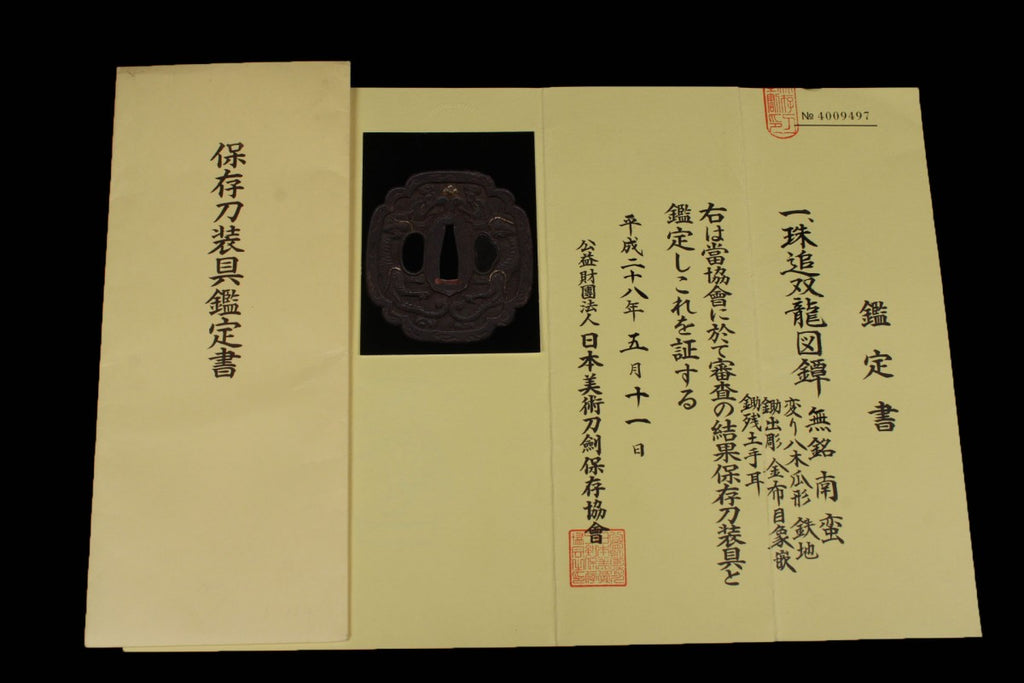 № 4009497
鑑定書
一、珠追双龍図鐔 無銘 南蛮
変り八木瓜形 鉄地
鋤出彫 金布目象嵌
鋤残土手耳
右は當協會に於て審査の結果保存刀装具と
鑑定しこれを証する
平成二十八年五月十一日
公益財團法人 日本美術刀劍保存協會
保存刀装具鑑定書